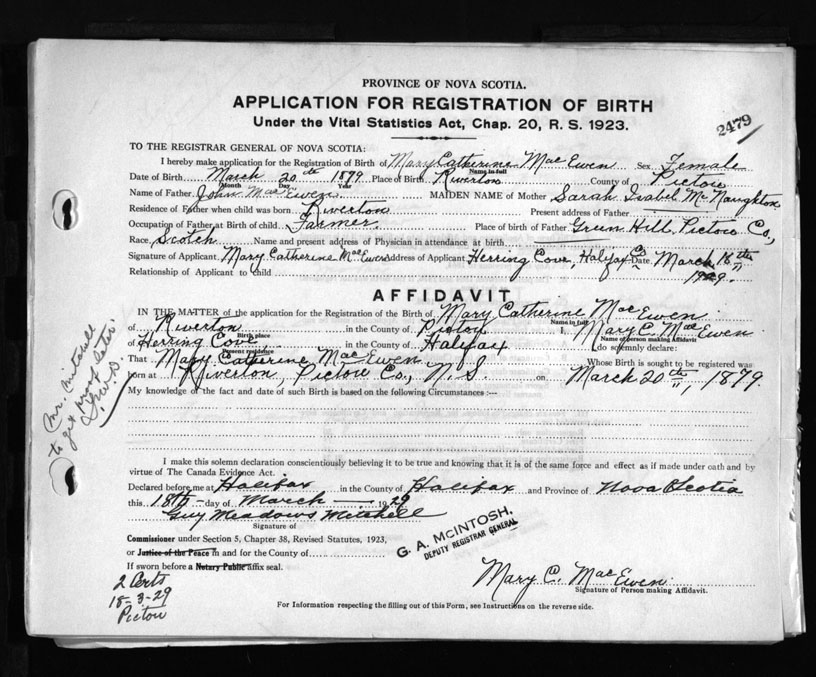 PROVINCE OF NOVA SCOTIA.
APPLICATION FOR REGISTRATION OF BIRTH
Under the Vital Statistics Act, Chap. 20, R. S. 1923.
2479
TO THE REGISTRAR GENERAL OF NOVA SCOTIA:
I hereby make application for the Registration of Birth of Mary Catherine MacEwen Sex Female
Name in full
Date of Birth March 20th 1879 Place of Birth Riverton County of Pictou
Month Day Year
Name of Father John MacEwen MAIDEN NAME of Mother Sarah Isabel McNaughton
Residence of Father when child was born Riverton Present address of Father
Occupation of Father at Birth of child Farmer Place of birth of Father Green Hill, Pictou Co.,
Race, Scotch Name and present address of Physician in attendance at birth
Signature of Applicant Mary Catherine MacEwen Address of Applicant Herring Cove, Halifax Co Date March 18th
1929.
Relationship of Applicant to Child
AFFIDAVIT
IN THE MATTER of the application for the Registration of the Birth of Mary Catherine MacEwen
Name in full
of Riverton in the County of Pictou I, Mary C. MacEwen
Birth place Name of person making Affidavit
of Herring Cove in the County of Halifax do solemnly declare:
Present residence
That Mary Catherine MacEwen Whose Birth is sought to be registered was
born at Riverton, Pictou Co., N. S. on March 20th, 1879.
My knowledge of the fact and date of such Birth is based on the following Circumstances :—
Mr. Mitchell
to get proof later.
I make this solemn declaration conscientiously believing it to be true and knowing that it is of the same force and effect as if made under oath and by
virtue of The Canada Evidence Act.
Declared before me at Halifax in the County of Halifax and Province of Nova Scotia
this 18th day of March 1929
Guy Meadows Mitchell
Signature of
Commissioner under Section 5, Chapter 38, Revised Statutes, 1923,
or Justice of the Peace in and for the County of
If sworn before a Notary Public affix seal.
G. A. McINTOSH,
DEPUTY REGISTRAR GENERAL
Mary C. MacEwen
Signature of Person making Affidavit.
2 Certs
18-3-29
Pictou
For Information respecting the filling out of this Form, see Instructions on the reverse side.